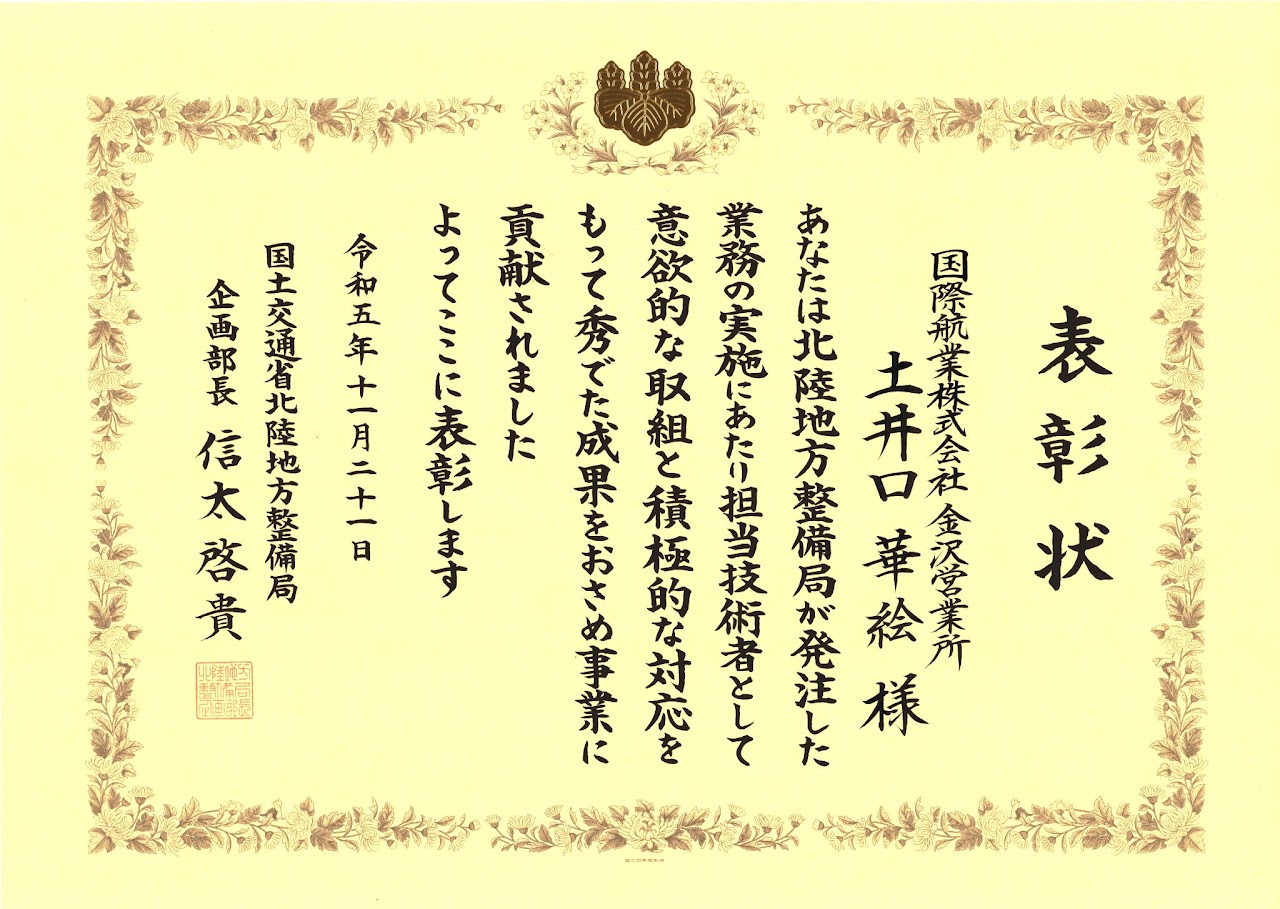 表彰状
国際航業株式会社 金沢営業所
土井口 華絵 様
あなたは北陸地方整備局が発注した
業務の実施にあたり担当技術者として
意欲的な取組と積極的な対応を
もって秀でた成果をおさめ事業に
貢献されました
よってここに表彰します
令和五年十一月二十一日
国土交通省北陸地方整備局
企画部長 信太啓貴